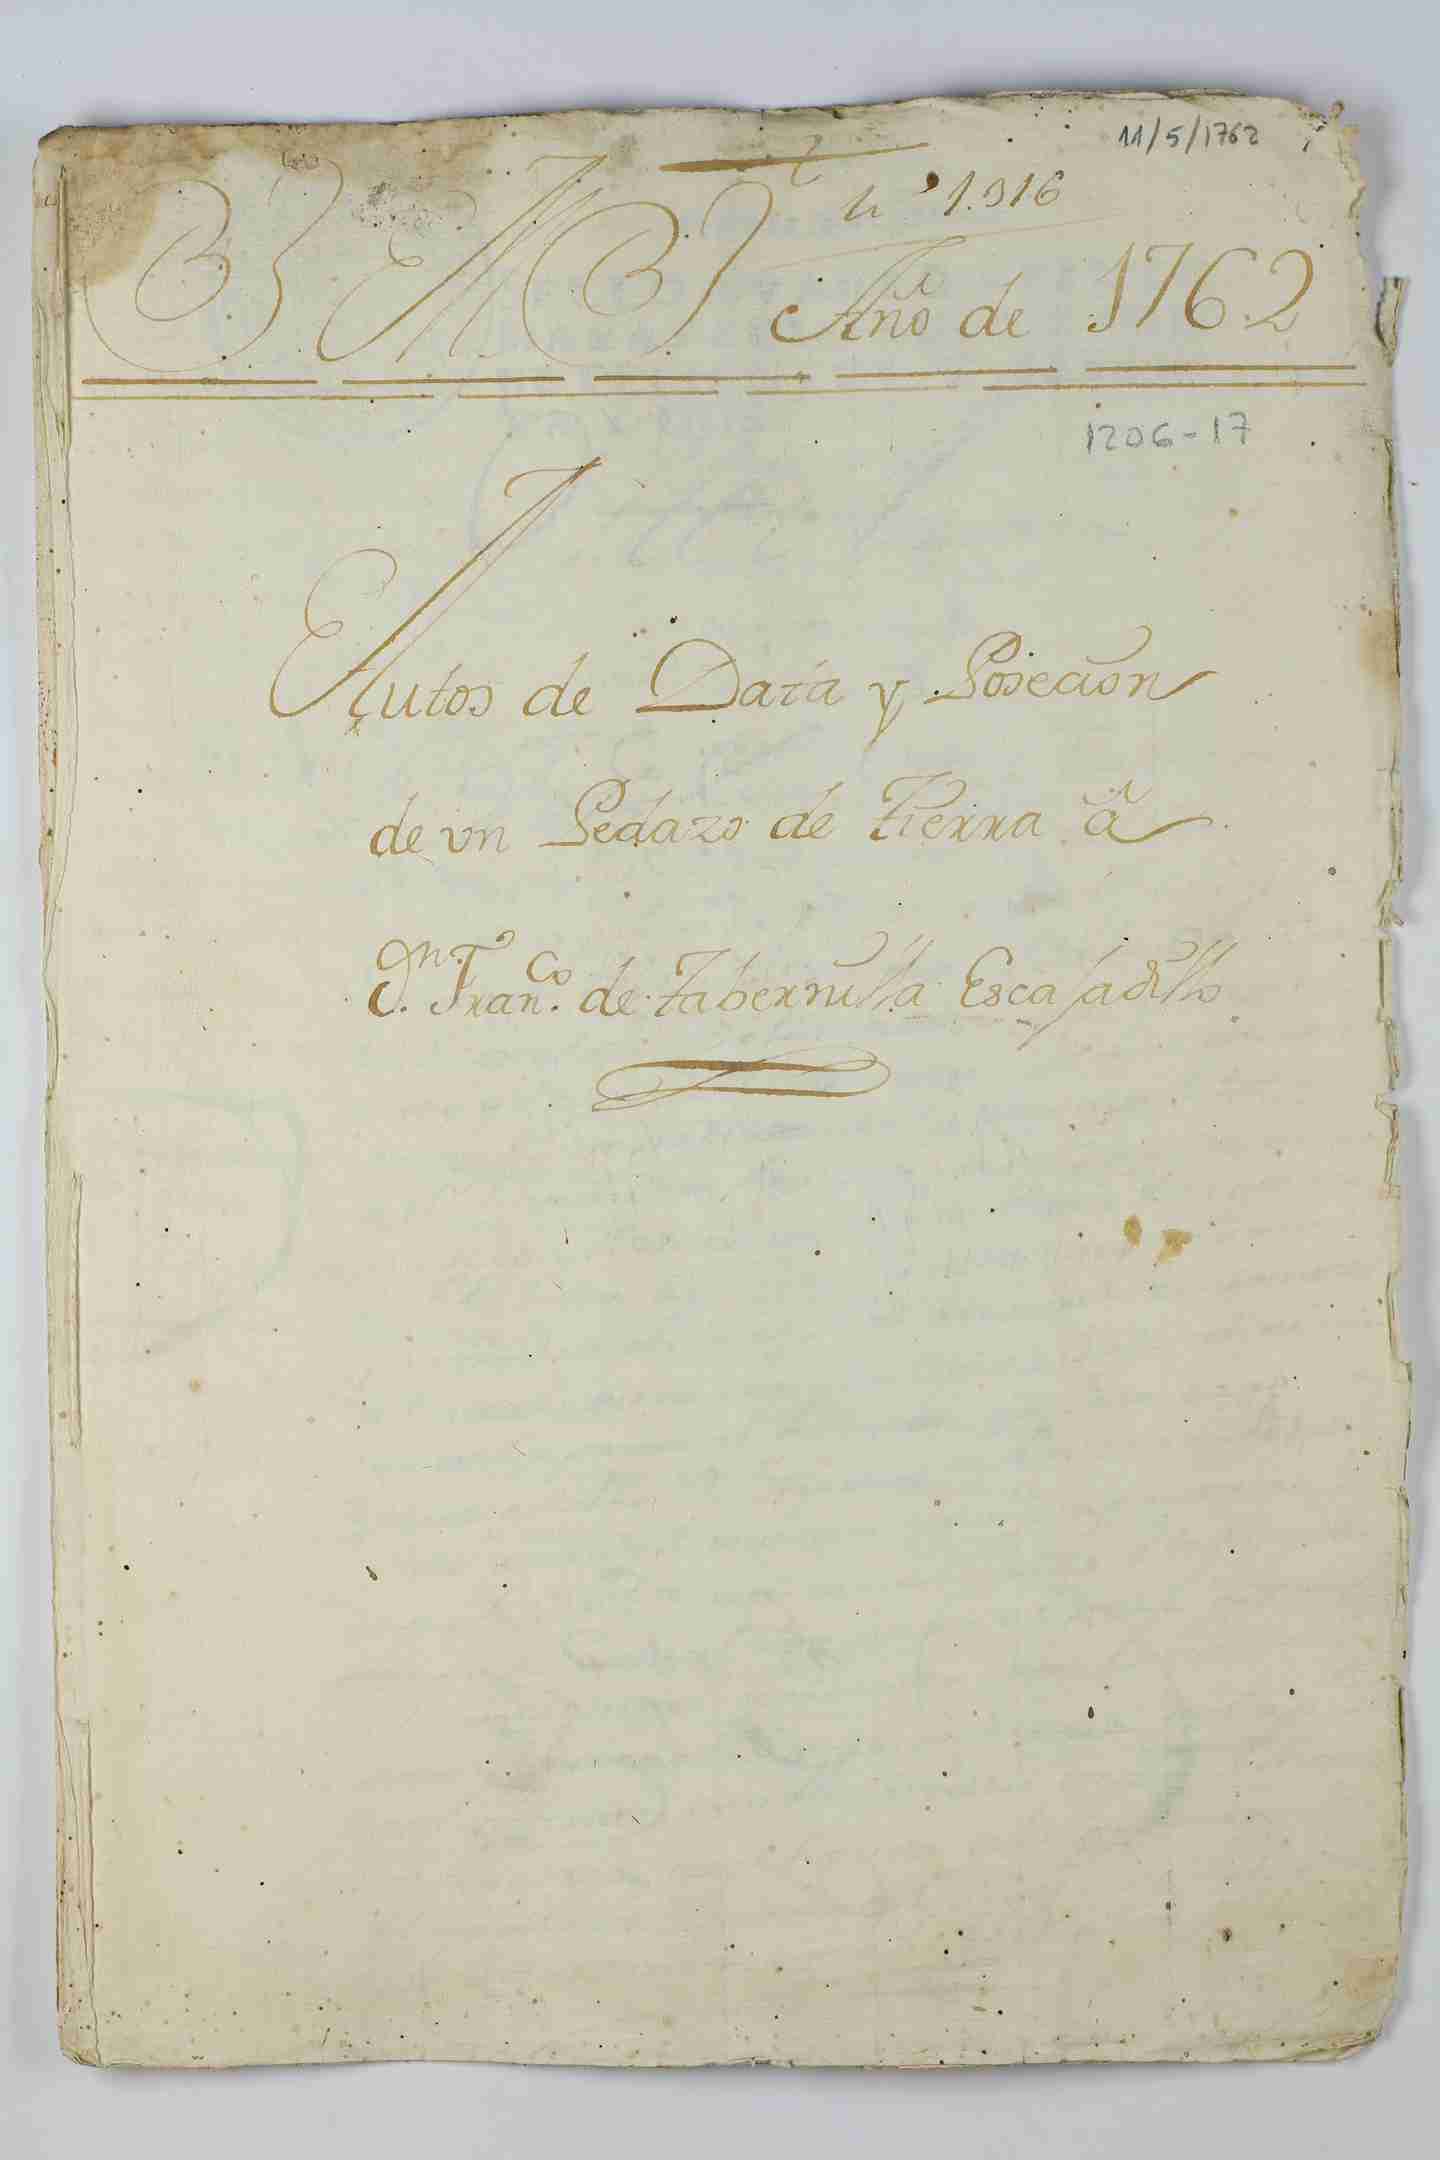 11/5/1762
n° 1.316
Año de 1762
1206-17
Autos de Data y Posecion
de vn Pedazo de Tierra â
Dn. Franco. de Tabernilla Escajadillo